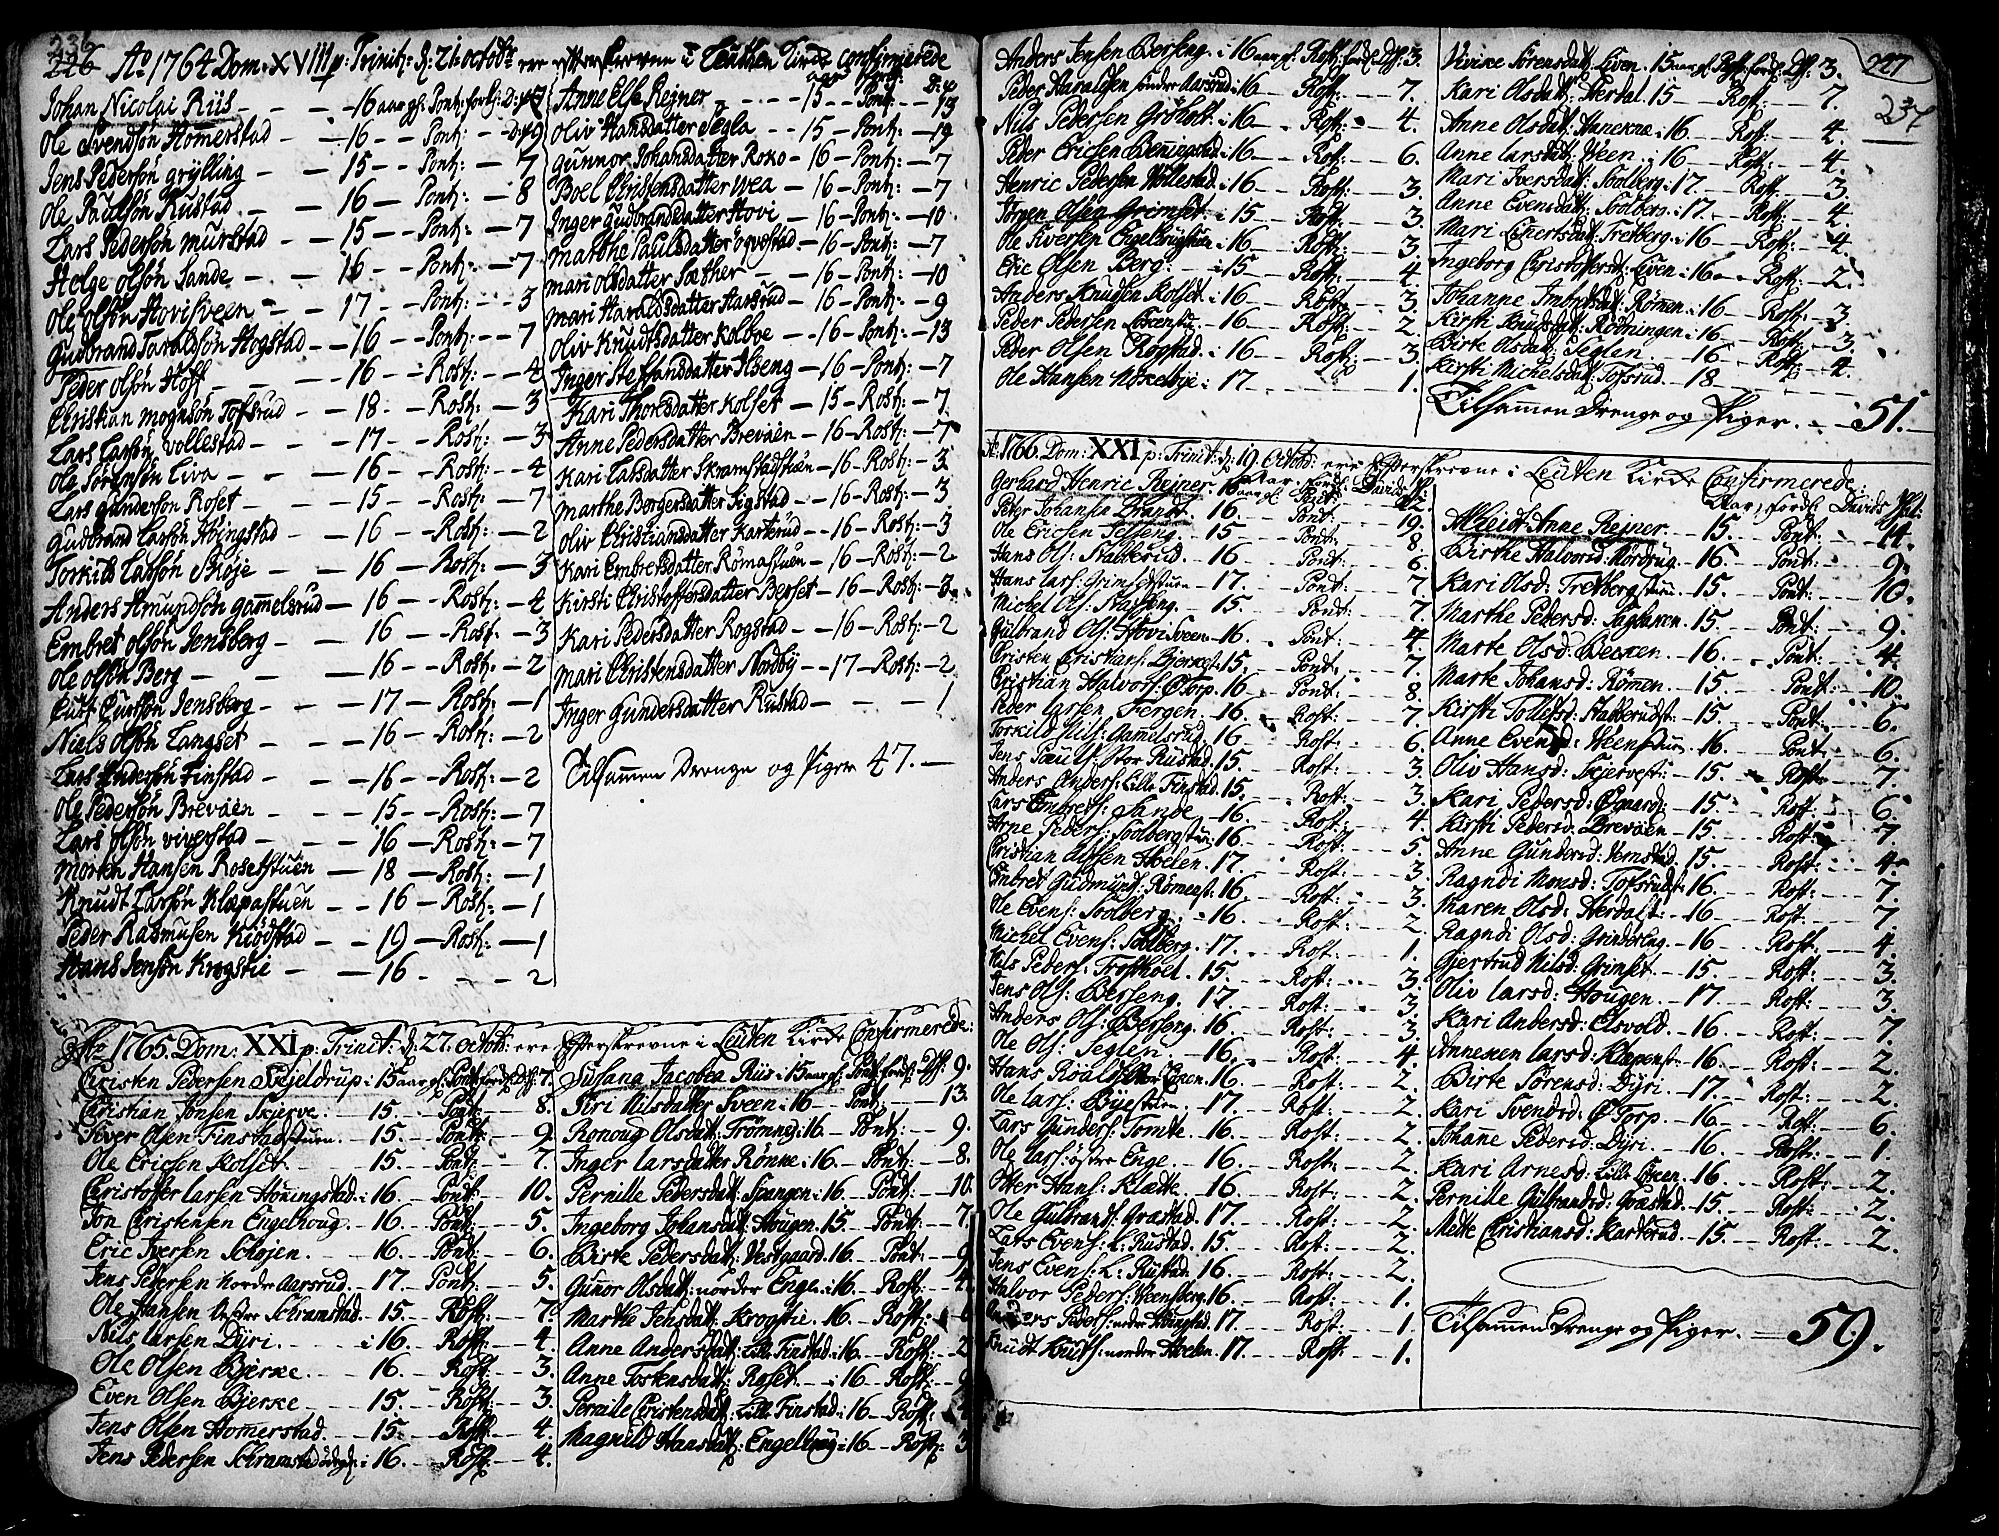 236
226 Ao 1764 Dom: XVIII p: Trinit: d: 21. octobr: ere efterskrevne i Leuthen Kirke confirmerede
Johan Nicolai Riis - - 16 aar gl. Pont:
Ole Svendsön Homerstad - 16 - Pont: - 9
Jens Pedersön grÿlling - - 15 - Pont: - 7
Ole Paulsön Rustad - - 16 - Pont: - 8
Lars Pedersön murstad - - 15 - Pont: - 7
Helge olsön Sande - - 16 - Pont: - 7
Ole olsön Hovisveen - - 17 - Pont: - 3
Gudbrand Taraldsön Hogstad - 16 - Pont: - 7
Peder olsön Hoff - - 16 - Rost: - 4
Christian mognsön Tofsrud - 18 - Rost: - 3
Lars Larsön vollestad - - 17 - Rost: - 3
Ole Sörensön Liva - - 16 - Rost: - 4
Lars gundersön Roset - - 15 - Rost: - 7
Gudbrand Larsön Höingstad - 16 - Rost: - 2
Torkild Larsön Skøje - 16 - Rost: - 3
Anders Amundsön gammelsrud - 16 - Rost: - 4
Embret olsön Jensberg - 16 - Rost: - 3
Ole olsön Berg - - 16 - Rost: - 2
Cust: Cursön Jensberg - 17 - Rost: - 1
Niels olsön Langset - - 16 - Rost: - 2
Lars Andersön Finstad - 16 - Rost: - 2
Ole Pedersön Brevaen - 15 - Rost: - 7
Lars olsön viverstad - 16 - Rost: - 7
Morten Hansen Rosetstuen - 18 - Rost: - 1
Knudt Larsön Klæpastuen - 16 - Rost: - 1
Peder Rasmusen Kiödstad - 19 - Rost: - 1
Hans Jensön Krogstie - 16 - - 2
Anne Else Rejner - - 15 - Pont: - 13
Oliv Hansdatter Segla - 15 - Pont: - 19
gunnor Johansdatter Roko - 16 - Pont: - 7
Boel Christensdatter Wea - 16 - Pont: - 7
Inger Gudbrandsdatter Hovi - 16 - Pont: - 10
Marthe Paulsdatter ogvestad - 16 - Pont: - 7
mari olsdatter Sæther - 16 - Pont: - 10
mari Haraldsdatter Aarsrud - 16 - Pont: - 9
Oliv Knudtsdatter Kolboe - 16 - Pont: - 13
Inger Steffansdatter Hseng - 16 - Pont: - 7
Kari Thoresdatter Kolset - 15 - Rost: - 7
Anne Pedersdatter Brevaen - 16 - Rost: - 7
Kari Larsdatter Skramstadstuen - 16 - Rost: - 3
Marthe Borgersdatter Sigstad - 16 - Rost: - 3
Oliv Christiansdatter Karterud - 16 - Rost: - 3
Kari Embretsdatter Römastuen - 16 - Rost: - 2
Kirsti Christoffersdatter Berset - 16 - Rost: - 3
Kari Pedersdatter Rogstad - 16 - Rost: - 2
Mari Christensdatter Nordby - 17 - Rost: - 2
Inger Gundersdatter Rustad - - 1
Tilsammen Drenge og Piger 47. -
Ao 1765. Dom: XXI p: Trinit: d: 27. octob: ere Efterskrevne i Leuten Kirke Confirmerede:
Christen Pedersen Skjeldrup i 15 aar gl. Pont: 7.
Christian Jonsen Skjerve. 15. Pont: 8.
Siver Olsen Finstadstuen. - 15. - Pont: - 9.
Ole Ericsen Kolset. 15. - Pont: 7.
Christoffer Larsen Höuingstad i 16. Pont: 10.
Jon Christensen Engelhoug - 16. Pont: 5.
Eric Iversen Schøjen. - 16. Pont: 6.
Jens Pedersen Nordre Aarsrud. - 17. Pont: 5.
Ole Hansen Schramstad. - 15. Rost: 7.
Nils Larsen Dÿri. i 16. Rost: 4.
Ole Olsen Bjerke. 16. Rost: 3.
Even Olsen Bjerke - 15. - Rost: 3.
Jens Olsen Homerstad. 15. - Rost: 4.
Jens Pedersen Schramstad i 16. Rost: 4.
Susana Jacobea Riis i 15 aar gl. 9.
Siri Nilsdatter Sveen i 16 - Pont: 13.
Ronoug Olsdatt: Trömnes i 16. Pont: 9.
Inger Larsdatter Rönne i 16. Pont: 8.
Pernille Pedersdatt: Spangen i 16 Pont: 10.
Ingeborg Johansdatt: Hougen. 15. Pont: 7.
Birte Pedersdatt: Vestgaard. 16. Pont: 9
Gunor Olsdatt: nordre Enge i 16. Rost: 4.
Marthe Jensdatt: Krogstie. 16. Rost:
Anne Andersdatt: Lille Finstad i 16. Rost: 2
Anne Tostensdatt: Roset. - i 16 Rost:
Pernille Christensdatt: Lille Finstad i 16 - Rost:
Magnild Hansdatt: Engelbrug i 16 - Rost: 3
Anders Jensen Berseng. i 16 aar gl. Rost: 3.
Peder Haralsen sönder Aarsrud i 16 Rost: 7.
Nils Pedersen Gröholt i 16 Rost: 4.
Peder Ericsen Beningstad i 16 Rost: 6.
Henric Pedersen Vollestad. i 16 - Rost: 3.
Jörgen Olsen Grimset. i 15 Rost: 3.
Ole Siversen Engelbrugstuen i 16 Rost: 3.
Eric Olsen Berg. - i 15 Rost: 4.
Anders Knudsen Kolset. i 16 Rost: 3.
Peder Pedersen Løkenstu. - 16 Rost: 2.
Peder Olsen Rogstad. i 16 Rost: 3.
Ole Hansen Nökelbye i 17. - 1.
Vivike Sörensdat: Even. 15 aar gl. 3.
Kari Olsdat: Herdal. 15 Rost: 7.
Anne Olsdat: Hanekne i 16 Rost: 4.
Anne Larsdat: Veen. i 16 Rost: 4.
Mari Iversdat: Solberg i 17. Rost: 3.
Anne Evensdat: Solberg. i 17. Rost: 4.
Mari Einertsdat: Tretberg. i 16 Rost: 4.
Ingeborg Christoffersd: Even i 16 Rost: 2.
Johanne Imbretsdat: Römen i 16 Rost: 3.
Kirsti Knudsdat: Rödningen i 16 Rost: 3.
Birte Olsdat: Seglen. - 16 Rost: 4.
Kirsti Michelsdat: Tofsrud. 18
Tilsammen Drenge og Piger. - 51. -
227
237
Ao 1766. Dom: XXI p: Trinit: d: 19. Octob: ere Efterskrevne i Leuten Kirke Confirmerede:
Gerhard Henric Rejner. 12.
Peter Johansen Brandt. 16. Pont: 19.
Ole Ericsen Jelseng. 15. Pont: 8.
Hans Ols: Hakkerud. 16 Pont: 6.
Hans Lars: Grimsetstuen. 17. Pont: 7.
Michel Ols: Stafseng. 15. Pont: 7.
Gulbrand Ols: Hovisveen. 16. Pont: 4.
Christen Christians: Bjerkest. 15. Pont: 7.
Christian Halvors: Ø Torp. 16 Pont: 8.
Peder Larsen Fergen. 16. Rost: 7.
Torkild Nils: Gamelsrug. 16 Rost: 6.
Jens Pauls: Stor Rustad. 15. Rost: 3.
Anders Anders: Lille Finstad. 15. Rost: 3.
Lars Embrets: Sande. 16. Rost: 4.
Arne Peders: Solbergstuen 16. Rost: 5.
Christian Alfsen Hoelen. 17. Rost: 3.
Embret Gudmunds: Römenst. 16. Rost: 3.
Ole Evens: Solberg. 16. Rost: 2.
Michel Evens: Solberg. 17. Rost: 1.
Nils Peders: Trofthoel. 15. Rost: 3.
Jens Ols: Berseng. 17. Rost: 3.
Anders Ols: Berseng. 16. Rost: 3.
Ole Ols: Seglen. 16. Rost: 4.
Hans Roals: Stor Løken. 16. Rost: 2.
Ole Lars: Byestuen. 17. Rost: 2.
Lars Gunders: Tomte. 16. Rost: 2.
Ole Lars: østre Enge. 16. Rost: 2.
Otter Hans: Klætte. 16. Rost: 2.
Ole Gulbrands: Grastad. 17. Rost: 2.
Lars Evens: L: Rustad. 15. Rost: 2.
Jens Evens: L: Rustad. 16. Rost: 2.
Halvor Peders: Veensberg. 16. Rost: 1.
Anders Peders: nedre Honstad. 17. Rost: 1.
Knudt Knuts: nordre Hoelen. 17. Rost: 1.
Aar, fordl: Davids Psal:
Alheidt Anne Rejner. 15. Pont: 14.
Birthe Halvorsd: Nordrug. 16. Pont: 9.
Kari Olsd: Tretbergstuen. 15. Pont: 10.
Marthe Pedersd: Tagharen. 15. Pont: 9.
Marte Olsd: Becken. 16. Pont: 4.
Marte Johansd: Römen. 15. Pont: 10.
Kirsti Tollefsd: Hakkerudst: 15. Pont: 6.
Anne Evensd: Veenstuen. 16. Pont: 6.
Oliv Hansd: Skjervest: 15. Rost: 7.
Kari Pedersd: Øgaard. 15. Rost: 6.
Kirsti Pedersd: Brevaen. 15. Rost: 7.
Anne Gundersd: Vernstad. 15. Rost: 4.
Ragndi Monsd: Tofsrudst: 16. Rost: 7.
Maren Olsd: Herdalst: 16. Rost: 7.
Ragndi Olsd: Grindereng. 16. Rost: 4.
Gjertrud Nilsd: Grimset. 15. Rost: 3.
Oliv Larsd: Hougen. 17. Rost: 3.
Kari Andersd: Elsvold. 16. Rost: 7.
Anneken Larsd: Klæpenst. 16. Rost: 2.
Birte Sörensd: Dÿri. 17. Rost: 2.
Kari Svendsd: Ø Torp. 16. Rost: 6.
Johane Pedersd: Dÿri. 16. Rost: 1.
Kari Arnesd: Lille Løken. 16. Rost: 2.
Pernille Gulbrandsd: Grastad. 15. Rost: 2.
Mette Christiansd: Karterud. 15. Rost: 2.
Tilsammen Drenge og Piger. - 59.